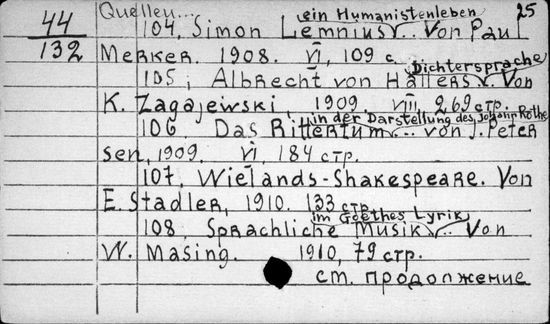 25
44
132
Quellen...
104, Simon Lemnius, ein Humanistenleben ... Von Paul
Merker. 1908. VI, 109 с.
105, Albrecht von Hallers Dichtersprache. Von
K. Zagajewski, 1909. VIII, 269 стр.
106. Das Rittertum in der Darstellung des Johann Rothe ... von J. Peter
sen, 1909. VI, 184 стр.
107, Wielands-Shakespeare. Von
E. Stadler, 1910. 133 стр.
108, Sprachliche Musik im Goethes Lyrik ... Von
W. Masing. 1910, 79 стр.
ст. продолжение